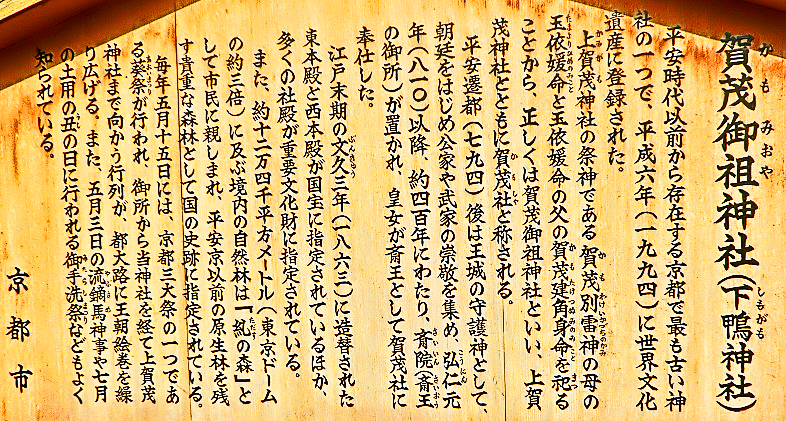 賀茂御祖神社(下鴨神社)
かもみおや
しもがも
平安時代以前から存在する京都で最も古い神
社の一つで、平成六年(一九九四)に世界文化
遺産に登録された。
上賀茂神社の祭神である賀茂別雷神の母の
玉依媛命と玉依媛命の父の賀茂建角身命を祀る
ことから、正しくは賀茂御祖神社といい、上賀
茂神社とともに賀茂社と称される。
平安遷都(七九四)後は王城の守護神として、
朝廷をはじめ公家や武家の崇敬を集め、弘仁元
年(八一〇)以降、約四百年にわたり、斎院(斎王
の御所)が置かれ、皇女が斎王として賀茂社に
奉仕した。
江戸末期の文久三年(一八六三)に造替された
東本殿と西本殿が国宝に指定されているほか、
多くの社殿が重要文化財に指定されている。
また、約十二万四千平方メートル(東京ドーム
の約三倍)に及ぶ境内の自然林は「糺の森」と
して市民に親しまれ、平安京以前の原生林を残
す貴重な森林として国の史跡に指定されている。
毎年五月十五日には、京都三大祭の一つであ
る葵祭が行われ、御所から当神社を経て上賀茂
神社まで向かう行列が、都大路に王朝絵巻を繰
り広げる。また、五月三日の流鏑馬神事や七月
の土用の丑の日に行われる御手洗祭などもよく
知られている。
京都市